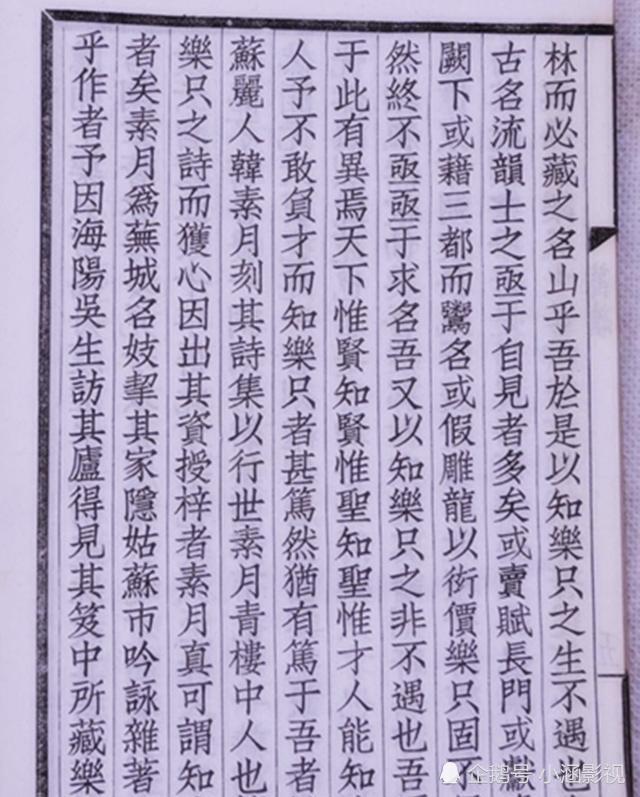 林而必藏之名山乎吾於是以知樂只之生不遇也
古名流韻士之亟于自見者多矣或賣賦長門或獻
闕下或藉三都而鸞名或假雕龍以衒價樂只固
然終不亟亟于求名吾又以知樂只之非不遇也吾
于此有異焉天下惟賢知賢惟聖知聖惟才人能知
人予不敢負才而知樂只者甚篤然猶有篤于吾者
蘇麗人韓素月刻其詩集以行世素月青樓中人也
樂只之詩而獲心因出其資授梓者素月真可謂知
者矣素月爲蕪城名妓挈其家隱姑蘇市吟詠雜著
乎作者予因海陽吳生訪其廬得見其笈中所藏樂
企鹅号 小涵影视